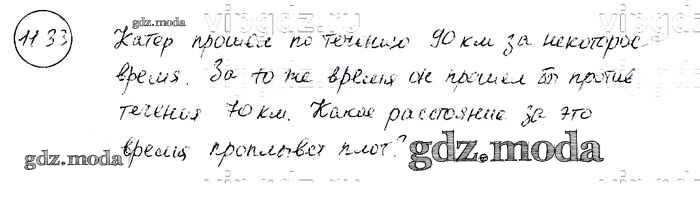 1133
Катер прошёл по течению 90 км за некоторое
время. За то же время он прошёл бы против
течения 70 км. Какое расстояние за это
время проплывёт плот?
gdz.moda
gdz.moda
gdz.moda